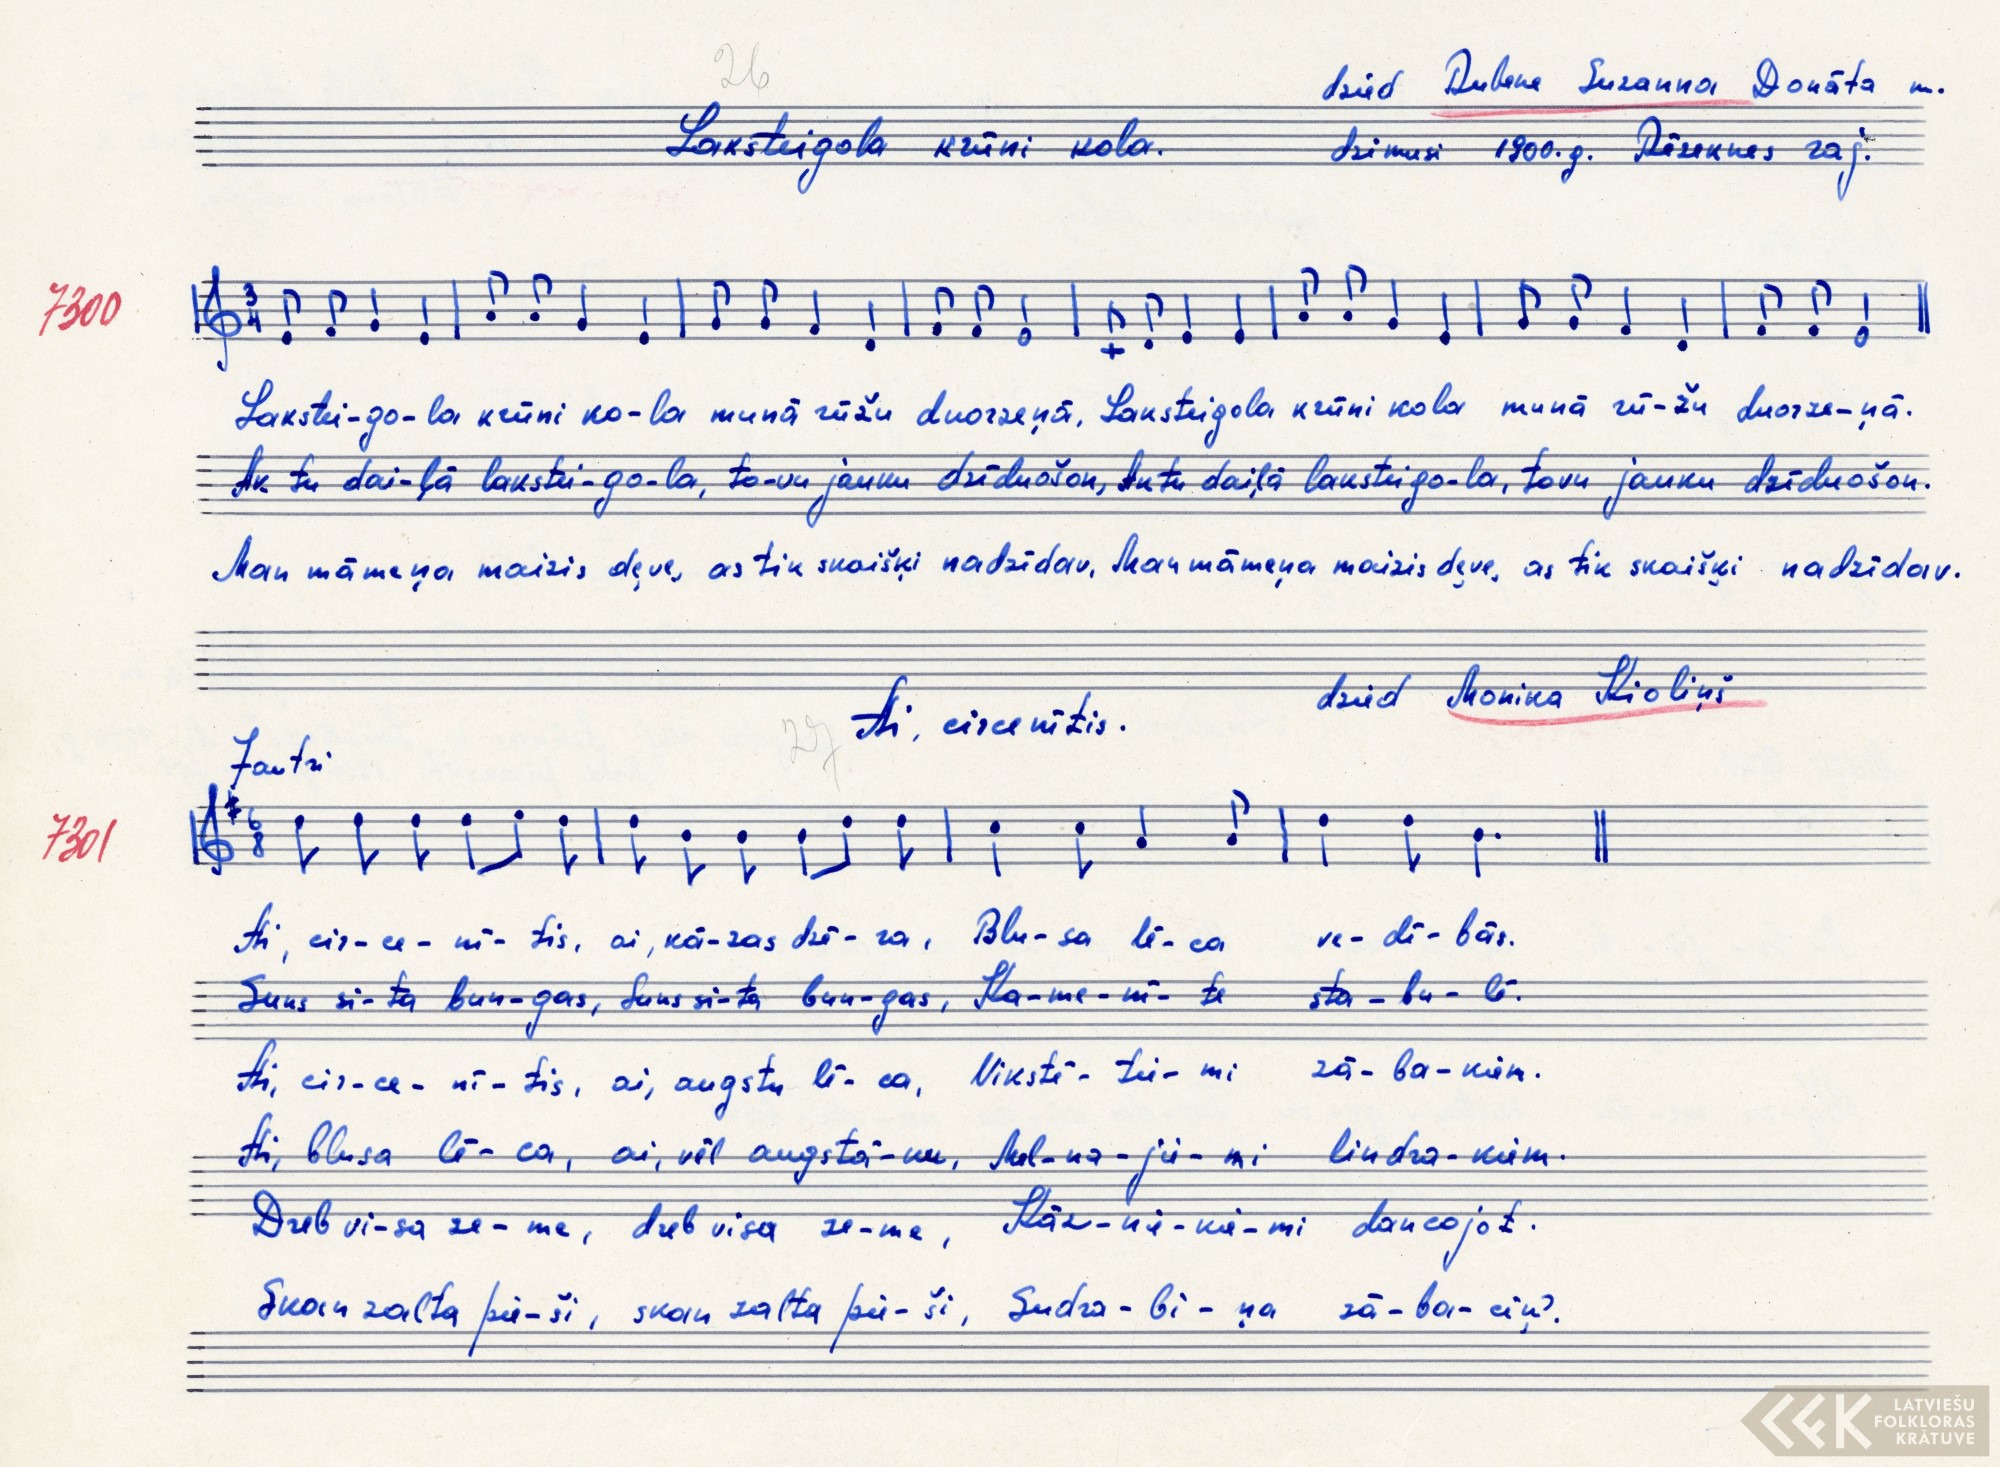 26
dzied Rubene Suzanna Donāta m.
Laksteigola krūni kola.
dzimusi 1900.g. Rēzeknes raj.
7300
3/4
Lakstei-go-la krūni ko-la munā rūžu duorzeņā, Laksteigola krūni kola munā rū-žu duorze-ņā.
Ak tu dai-ļā lakstei-go-la, to-vu jauku dzīduošon, Ak tu daiļā laksteigo-la, tovu jauku dzīduošon.
Man māmeņa maizis deve, as tik skaišķi nadzīdav, Man māmeņa maizis deve, as tik skaišķi nadzīdav.
dzied Monika Kioliņš
27
Ai, circenītis.
Jautri
7301
6/8
Ai, cir-ce-nī-tis, ai, kā-zas dzē-ra, Blu-sa lē-ca ve-dī-bās.
Suns si-ta bun-gas, Suns si-ta bun-gas, Ka-me-nī-te sta-bu-lē.
Ai, cir-ce-nī-tis, ai, augstu lē-ca, Vikstē-tie-mi zā-ba-kiem.
Ai, blusa lē-ca, ai, vēl augstā-ku, Mel-na-jie-mi lindra-kiem.
Dreb vi-sa ze-me, dreb visa ze-me, Kāz-nie-kie-mi dancojot.
Skan zalta pie-ši, skan zalta pie-ši, Sudra-bi-ņa zā-ba-ciņ?.
LATVIEŠU
FOLKLORAS
KRĀTUVE